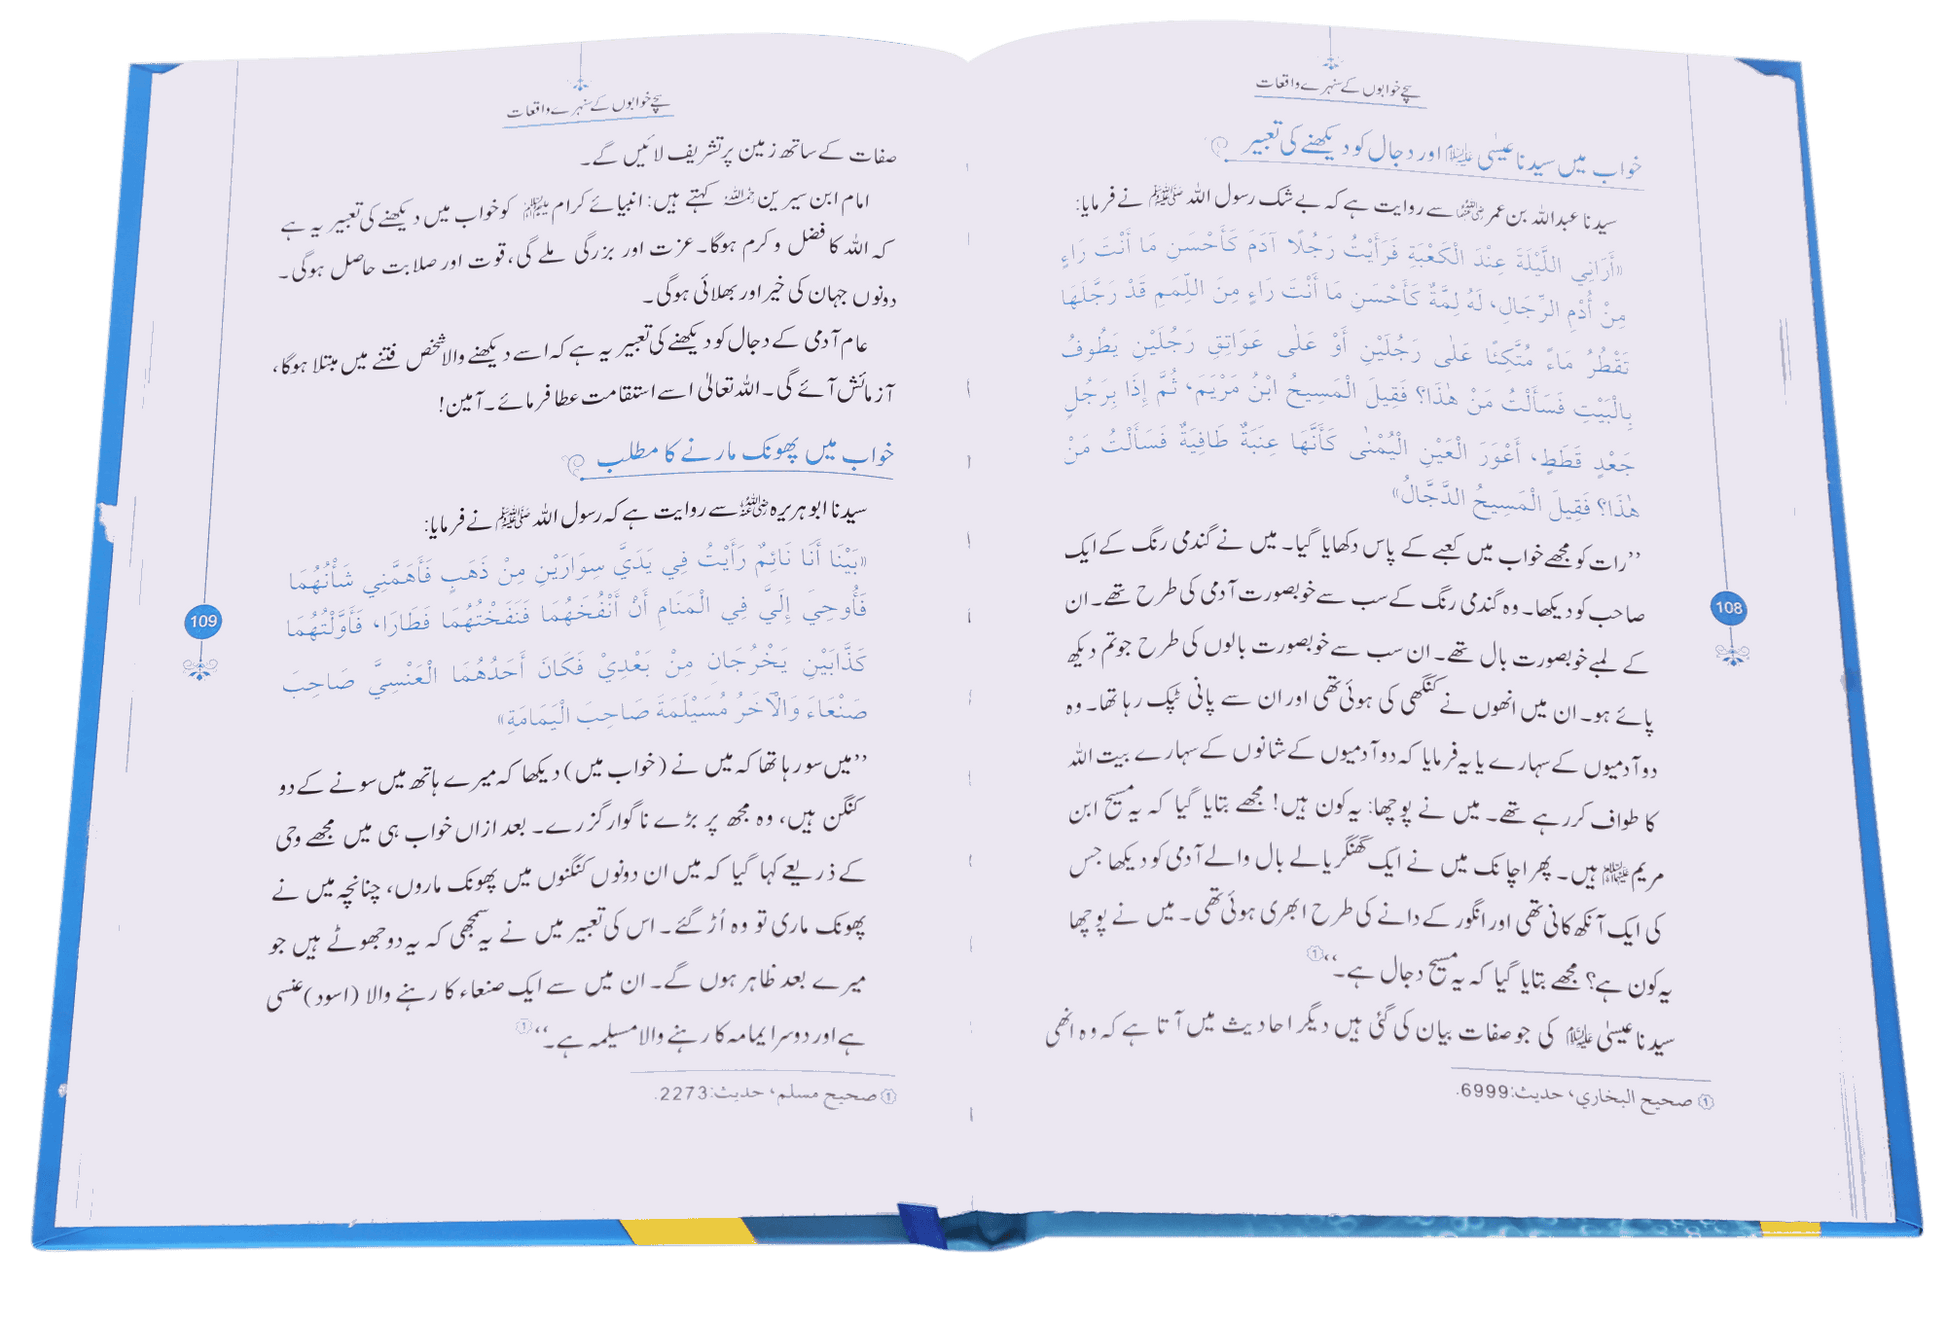 سچے خوابوں کے سنہرے واقعات
خواب میں سیدنا عیسیٰ علیہ السلام اور دجال کو دیکھنے کی تعبیر
سیدنا عبداللہ بن عمر رضی اللہ عنہما سے روایت ہے کہ بے شک رسول اللہ ﷺ نے فرمایا:
«أَرَانِي اللَّيْلَةَ عِنْدَ الْكَعْبَةِ فَرَأَيْتُ رَجُلًا آدَمَ كَأَحْسَنِ مَا أَنْتَ رَاءٍ
مِنْ أُدْمِ الرِّجَالِ، لَهُ لِمَّةٌ كَأَحْسَنِ مَا أَنْتَ رَاءٍ مِنَ اللِّمَمِ قَدْ رَجَّلَهَا
تَقْطُرُ مَاءً مُتَّكِئًا عَلٰى رَجُلَيْنِ أَوْ عَلٰى عَوَاتِقِ رَجُلَيْنِ يَطُوفُ
بِالْبَيْتِ فَسَأَلْتُ مَنْ هٰذَا؟ فَقِيلَ الْمَسِيحُ ابْنُ مَرْيَمَ، ثُمَّ إِذَا بِرَجُلٍ
جَعْدٍ قَطَطٍ، أَعْوَرَ الْعَيْنِ الْيُمْنٰى كَأَنَّهَا عِنَبَةٌ طَافِيَةٌ فَسَأَلْتُ مَنْ
هٰذَا؟ فَقِيلَ الْمَسِيحُ الدَّجَّالُ»
’’رات کو مجھے خواب میں کعبے کے پاس دکھایا گیا۔ میں نے گندمی رنگ کے ایک
صاحب کو دیکھا۔ وہ گندمی رنگ کے سب سے خوبصورت آدمی کی طرح تھے۔ ان
کے لمبے خوبصورت بال تھے۔ ان سب سے خوبصورت بالوں کی طرح جو تم دیکھ
پائے ہو۔ ان میں انھوں نے کنگھی کی ہوئی تھی اور ان سے پانی ٹپک رہا تھا۔ وہ
دو آدمیوں کے سہارے یا یہ فرمایا کہ دو آدمیوں کے شانوں کے سہارے بیت اللہ
کا طواف کر رہے تھے۔ میں نے پوچھا: یہ کون ہیں! مجھے بتایا گیا کہ یہ مسیح ابن
مریم علیہما السلام ہیں۔ پھر اچانک میں نے ایک گھنگریالے بال والے آدمی کو دیکھا جس
کی ایک آنکھ کانی تھی اور انگور کے دانے کی طرح ابھری ہوئی تھی۔ میں نے پوچھا
یہ کون ہے؟ مجھے بتایا گیا کہ یہ مسیح دجال ہے۔‘‘ ①
سیدنا عیسیٰ علیہ السلام کی جو صفات بیان کی گئی ہیں دیگر احادیث میں آتا ہے کہ وہ انھی
① صحيح البخاري، حديث:6999.
108
سچے خوابوں کے سنہرے واقعات
صفات کے ساتھ زمین پر تشریف لائیں گے۔
امام ابن سیرین رحمہ اللہ کہتے ہیں: انبیائے کرام علیہم السلام کو خواب میں دیکھنے کی تعبیر یہ ہے
کہ اللہ کا فضل و کرم ہوگا۔ عزت اور بزرگی ملے گی، قوت اور صلابت حاصل ہوگی۔
دونوں جہان کی خیر اور بھلائی ہوگی۔
عام آدمی کے دجال کو دیکھنے کی تعبیر یہ ہے کہ اسے دیکھنے والا شخص فتنے میں مبتلا ہوگا،
آزمائش آئے گی۔ اللہ تعالیٰ اسے استقامت عطا فرمائے۔ آمین!
خواب میں پھونک مارنے کا مطلب
سیدنا ابو ہریرہ رضی اللہ عنہ سے روایت ہے کہ رسول اللہ ﷺ نے فرمایا:
«بَيْنَا أَنَا نَائِمٌ رَأَيْتُ فِي يَدَيَّ سِوَارَيْنِ مِنْ ذَهَبٍ فَأَهَمَّنِي شَأْنُهُمَا
فَأُوحِيَ إِلَيَّ فِي الْمَنَامِ أَنْ أَنْفُخَهُمَا فَنَفَخْتُهُمَا فَطَارَا، فَأَوَّلْتُهُمَا
كَذَّابَيْنِ يَخْرُجَانِ مِنْ بَعْدِيْ فَكَانَ أَحَدُهُمَا الْعَنْسِيَّ صَاحِبَ
صَنْعَاءَ وَالْآخَرُ مُسَيْلَمَةَ صَاحِبَ الْيَمَامَةِ»
’’میں سو رہا تھا کہ میں نے (خواب میں) دیکھا کہ میرے ہاتھ میں سونے کے دو
کنگن ہیں، وہ مجھ پر بڑے ناگوار گزرے۔ بعد ازاں خواب ہی میں مجھے وحی
کے ذریعے کہا گیا کہ میں ان دونوں کنگنوں میں پھونک ماروں، چنانچہ میں نے
پھونک ماری تو وہ اُڑ گئے۔ اس کی تعبیر میں نے یہ سمجھی کہ یہ دو جھوٹے ہیں جو
میرے بعد ظاہر ہوں گے۔ ان میں سے ایک صنعاء کا رہنے والا (اسود) عنسی
ہے اور دوسرا یمامہ کا رہنے والا مسیلمہ ہے۔‘‘ ①
① صحيح مسلم، حديث:2273.
109